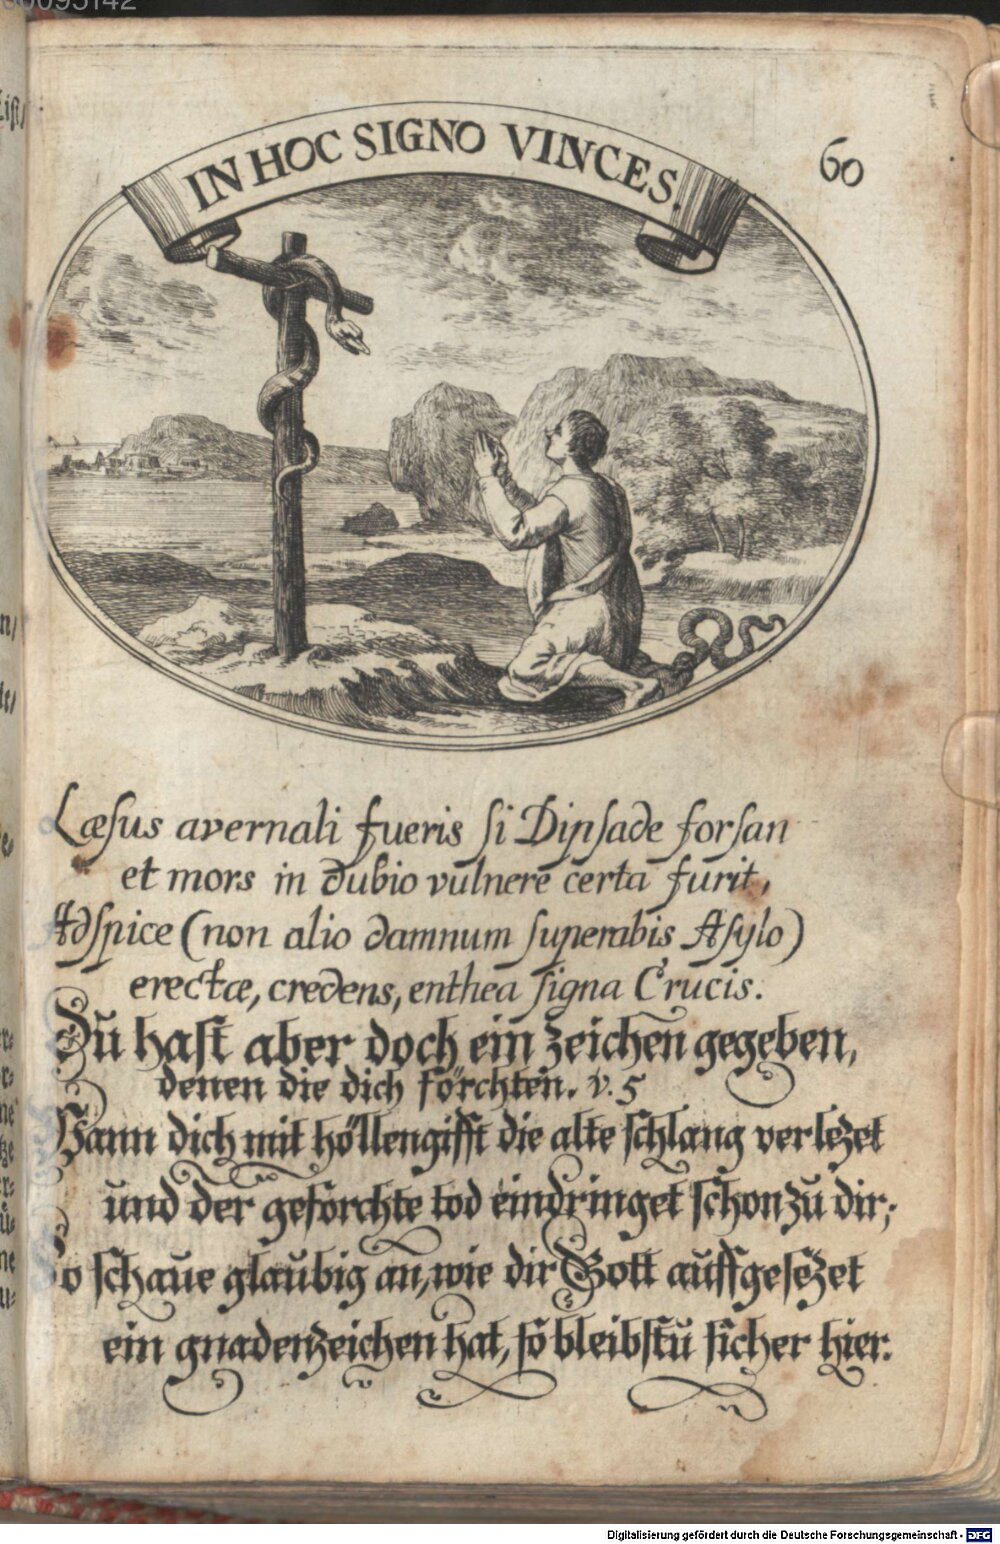 00095142
IN HOC SIGNO VINCES.
60
Læſus avernali fueris ſi Dipſade forſan
et mors in dubio vulnere certa furit,
Adſpice (non alio damnum ſuperabis Aſylo)
erectæ, credens, enthea ſigna Crucis.
Du haſt aber doch ein zeichen gegeben,
denen die dich förchten. v. 5
Wann dich mit höllengifft die alte ſchlang verlezet
und der geförchte tod eindringet ſchon zu dir;
So ſchaue glaubig an, wie dir Gott auffgeſezet
ein gnadenzeichen hat, ſo bleibſtu ſicher hier.
Digitalisierung gefördert durch die Deutsche Forschungsgemeinschaft - DFG